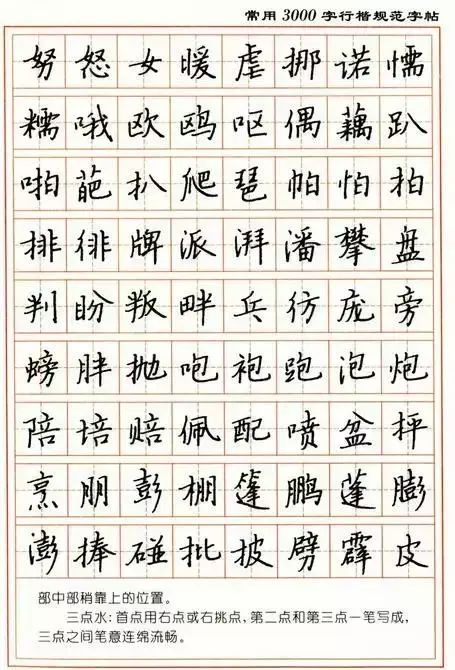 常用3000字行楷规范字帖
努怒女暖虐挪诺懦
糯哦欧鸥呕偶藕趴
啪葩扒爬琶帕怕拍
排徘牌派湃潘攀盘
判盼叛畔乓彷庞旁
螃胖抛咆袍跑泡炮
陪培赔佩配喷盆抨
烹朋彭棚篷鹏蓬膨
澎捧碰批披劈霹皮
部中部稍靠上的位置。
三点水:首点用右点或右挑点,第二点和第三点一笔写成,
三点之间笔意连绵流畅。